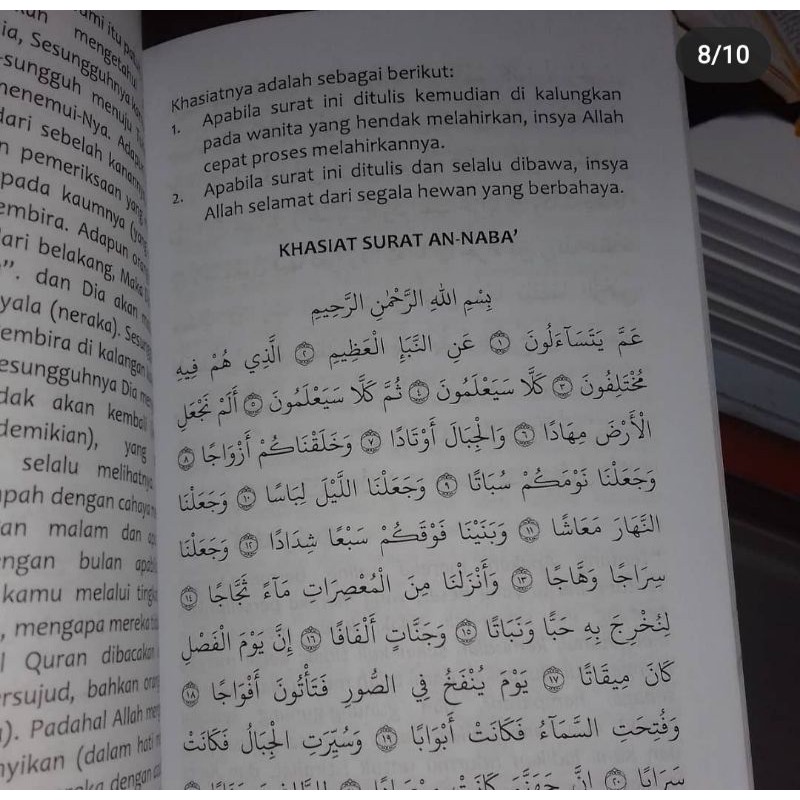 umi itu pa
mengetahui
ia, Sesungguhnya
-sungguh menuju
menemui-Nya. Adapun
dari sebelah kanannya
n pemeriksaan yang
pada kaumnya (yang
embira. Adapun orang
ari belakang, Maka
". dan Dia akan
yala (neraka).
embira di kalangan
esungguhnya Dia
dak akan kembali
demikian), yang
selalu melihatnya
pah dengan cahaya
an malam dan
engan bulan apabila
kamu melalui tingka
, mengapa mereka
l Quran dibacakan
ersujud, bahkan orang
). Padahal Allah
nyikan (dalam hati
eka dengan
8/10
Khasiatnya adalah sebagai berikut:
1. Apabila surat ini ditulis kemudian di kalungkan
pada wanita yang hendak melahirkan, insya Allah
cepat proses melahirkannya.
2. Apabila surat ini ditulis dan selalu dibawa, insya
Allah selamat dari segala hewan yang berbahaya.
KHASIAT SURAT AN-NABA'
بِسْمِ اللهِ الرَّحْمٰنِ الرَّحِيْمِ
عَمَّ يَتَسَآءَلُونَ ﴿١﴾ عَنِ النَّبَإِ الْعَظِيمِ ﴿٢﴾ الَّذِي هُمْ فِيهِ
مُخْتَلِفُونَ ﴿٣﴾ كَلَّا سَيَعْلَمُونَ ﴿٤﴾ ثُمَّ كَلَّا سَيَعْلَمُونَ ﴿٥﴾ أَلَمْ نَجْعَلِ
الْأَرْضَ مِهَادًا ﴿٦﴾ وَالْجِبَالَ أَوْتَادًا ﴿٧﴾ وَخَلَقْنَاكُمْ أَزْوَاجًا ﴿٨﴾
وَجَعَلْنَا نَوْمَكُمْ سُبَاتًا ﴿٩﴾ وَجَعَلْنَا اللَّيْلَ لِبَاسًا ﴿١٠﴾ وَجَعَلْنَا
النَّهَارَ مَعَاشًا ﴿١١﴾ وَبَنَيْنَا فَوْقَكُمْ سَبْعًا شِدَادًا ﴿١٢﴾ وَجَعَلْنَا
سِرَاجًا وَهَّاجًا ﴿١٣﴾ وَأَنْزَلْنَا مِنَ الْمُعْصِرَاتِ مَآءً ثَجَّاجًا ﴿١٤﴾
لِنُخْرِجَ بِهِ حَبًّا وَنَبَاتًا ﴿١٥﴾ وَجَنَّاتٍ أَلْفَافًا ﴿١٦﴾ إِنَّ يَوْمَ الْفَصْلِ
كَانَ مِيقَاتًا ﴿١٧﴾ يَوْمَ يُنْفَخُ فِي الصُّورِ فَتَأْتُونَ أَفْوَاجًا ﴿١٨﴾
وَفُتِحَتِ السَّمَآءُ فَكَانَتْ أَبْوَابًا ﴿١٩﴾ وَسُيِّرَتِ الْجِبَالُ فَكَانَتْ
سَرَابًا ﴿٢٠﴾ إِنَّ جَهَنَّمَ كَانَتْ